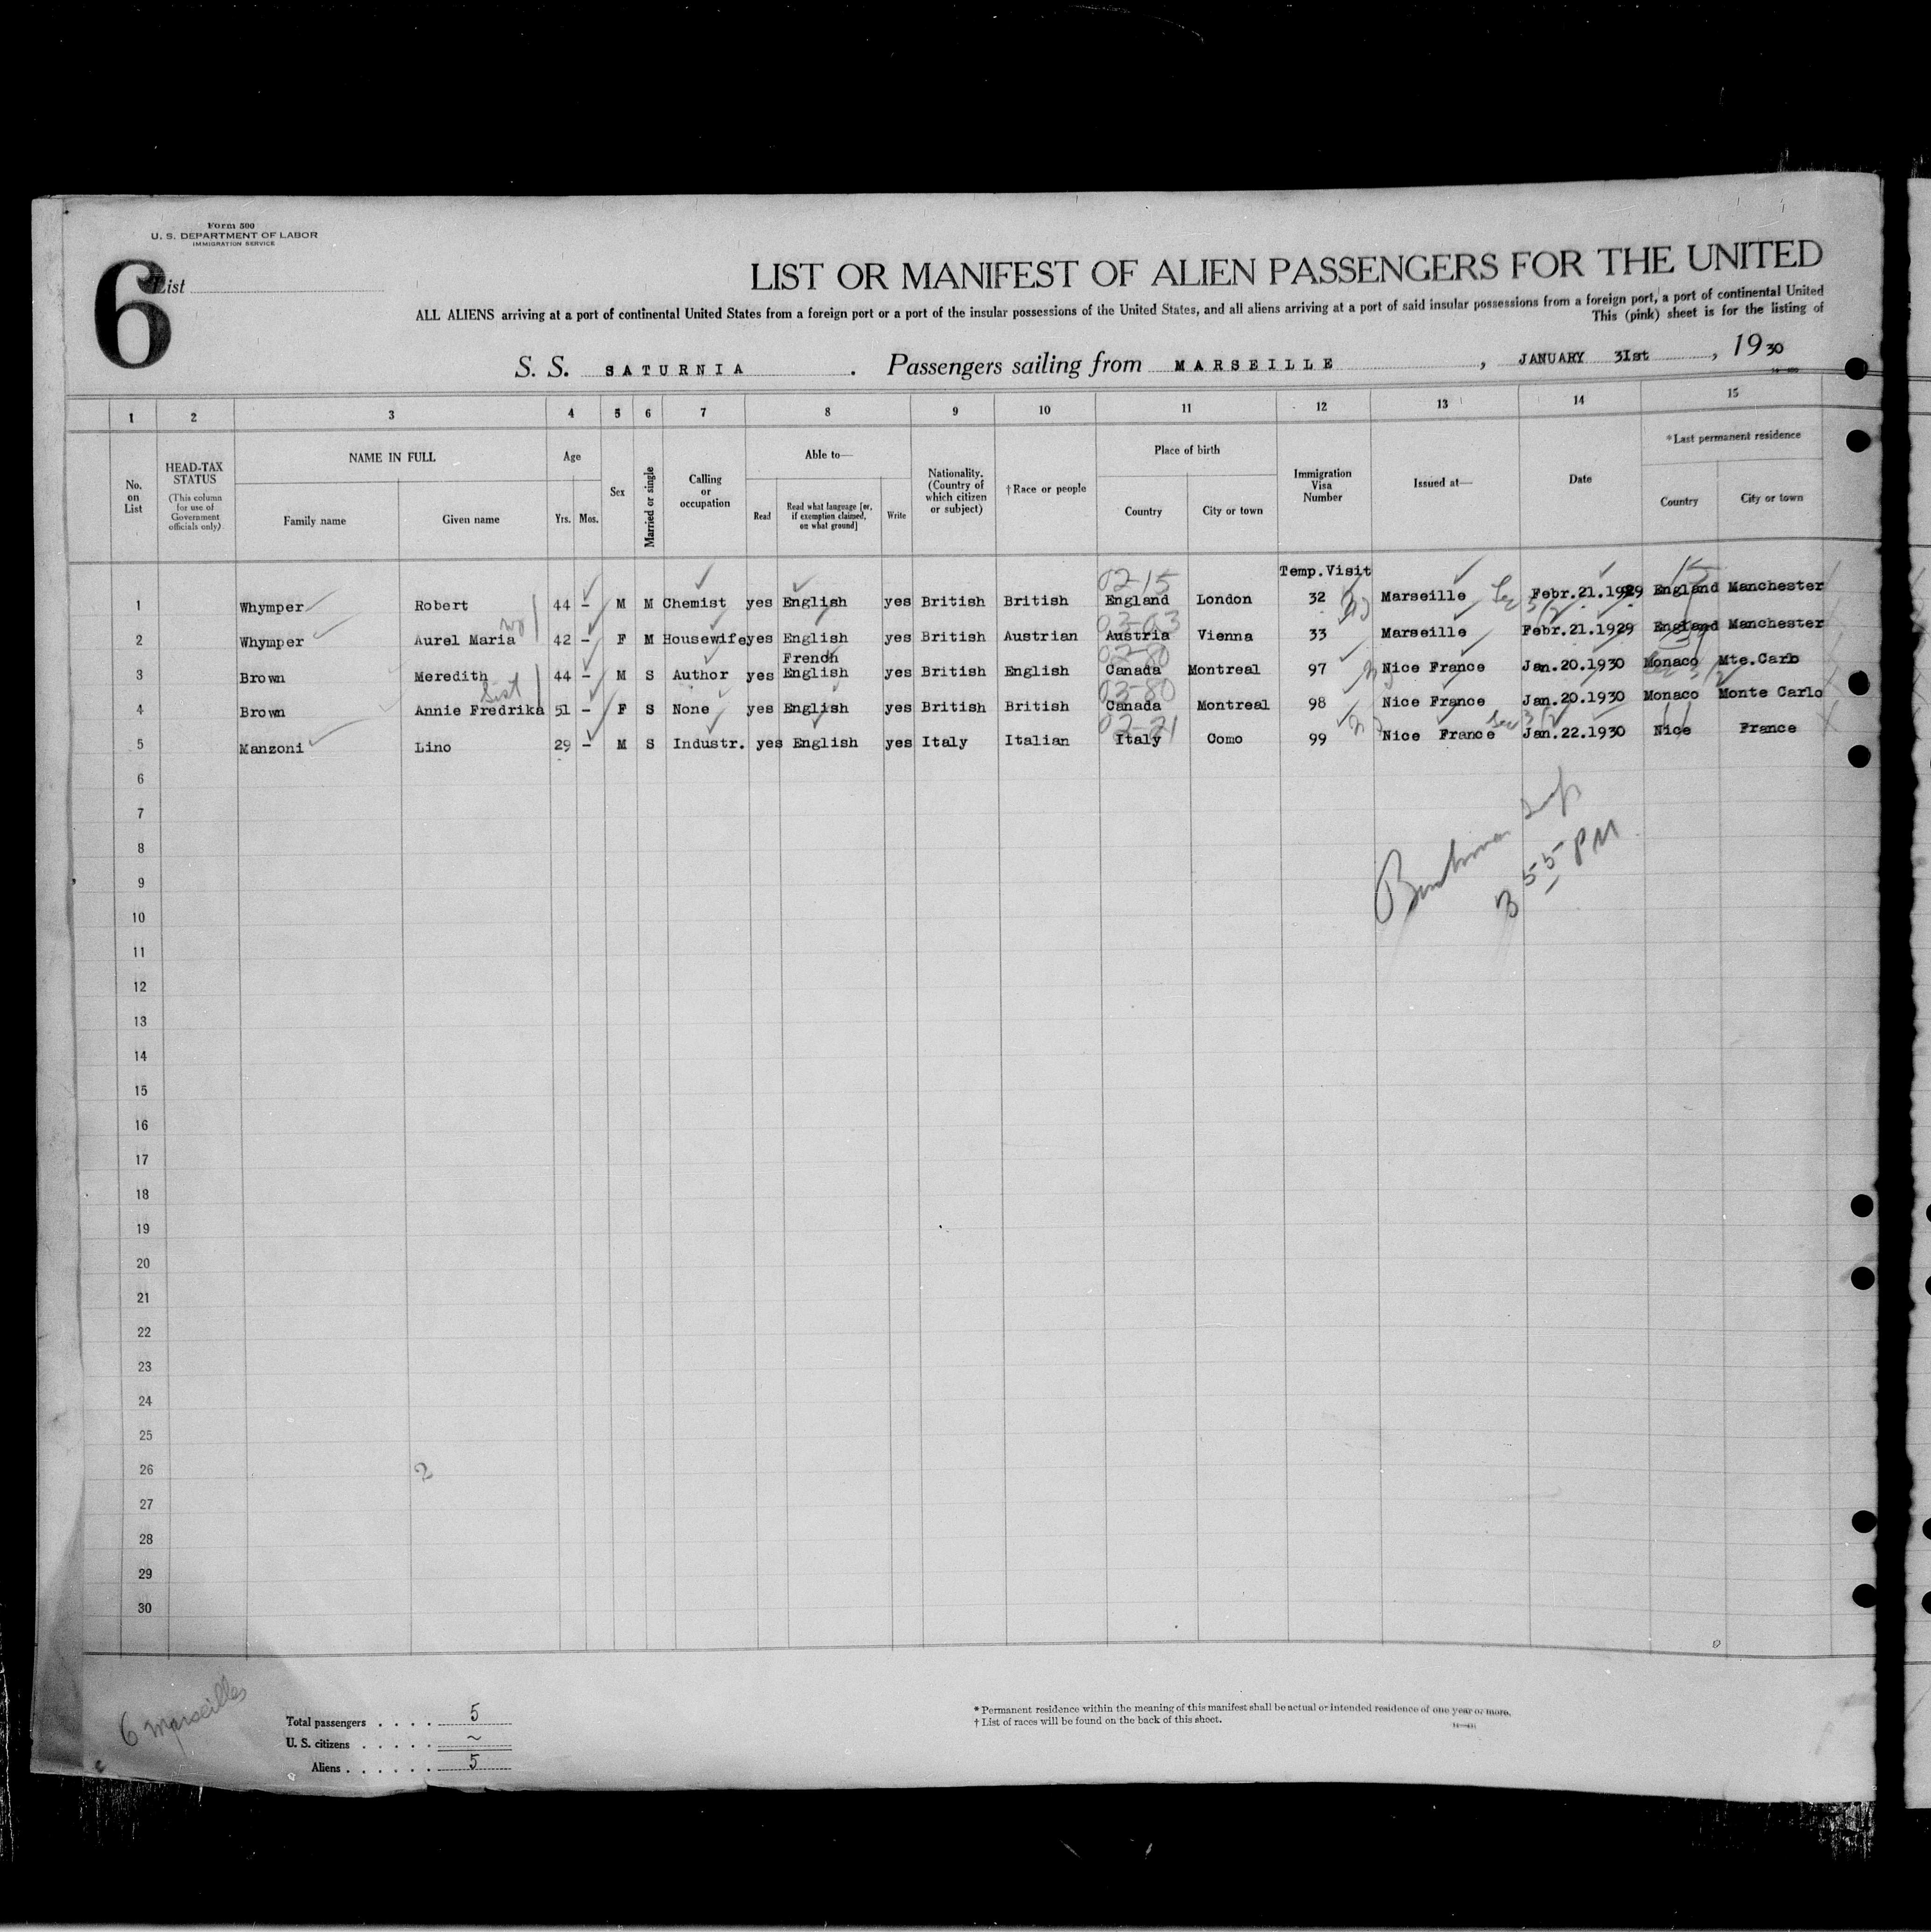 Form 500
U. S. DEPARTMENT OF LABOR
IMMIGRATION SERVICE
6
List
LIST OR MANIFEST OF ALIEN PASSENGERS FOR THE UNITED
ALL ALIENS arriving at a port of continental United States from a foreign port or a port of the insular possessions of the United States, and all aliens arriving at a port of said insular possessions from a foreign port, a port of continental United
This (pink) sheet is for the listing of
S. S. SATURNIA. Passengers sailing from MARSEILLE, JANUARY 3Ist, 1930
1 2 3 4 5 6 7 8 9 10 11 12 13 14 15
No. on List
HEAD-TAX STATUS (This column for use of Government officials only)
NAME IN FULL
Family name Given name
Age
Yrs. Mos.
Sex
Married or single
Calling or occupation
Able to—
Read Read what language [or, if exemption claimed, on what ground] Write
Nationality. (Country of which citizen or subject)
†Race or people
Place of birth
Country City or town
Immigration Visa Number
Issued at—
Date
*Last permanent residence
Country City or town
Temp.Visit
02-15 15
1 Whymper Robert 44 - M M Chemist yes English yes British British England London 32 Marseille Febr.21.1929 England Manchester
2 Whymper Aurel Maria 42 - F M Housewife yes English yes British Austrian Austria Vienna 33 Marseille Febr.21.1929 England Manchester
French
3 Brown Meredith 44 - M S Author yes English yes British English Canada Montreal 97 Nice France Jan.20.1930 Monaco Mte.Carlo
Sist 03-80
4 Brown Annie Fredrika 51 - F S None yes English yes British British Canada Montreal 98 Nice France Jan.20.1930 Monaco Monte Carlo
02-21 Sec 3/2
5 Manzoni Lino 29 - M S Industr. yes English yes Italy Italian Italy Como 99 Nice France Jan.22.1930 Nice France
6
7
8
9
10
3 55 PM
11
12
13
14
15
16
17
18
19
20
21
22
23
24
25
26 2
27
28
29
30
6 Marseilles
Total passengers . . . . 5
U. S. citizens . . . . . ~
Aliens . . . . . . 5
* Permanent residence within the meaning of this manifest shall be actual or intended residence of one year or more.
† List of races will be found on the back of this sheet.